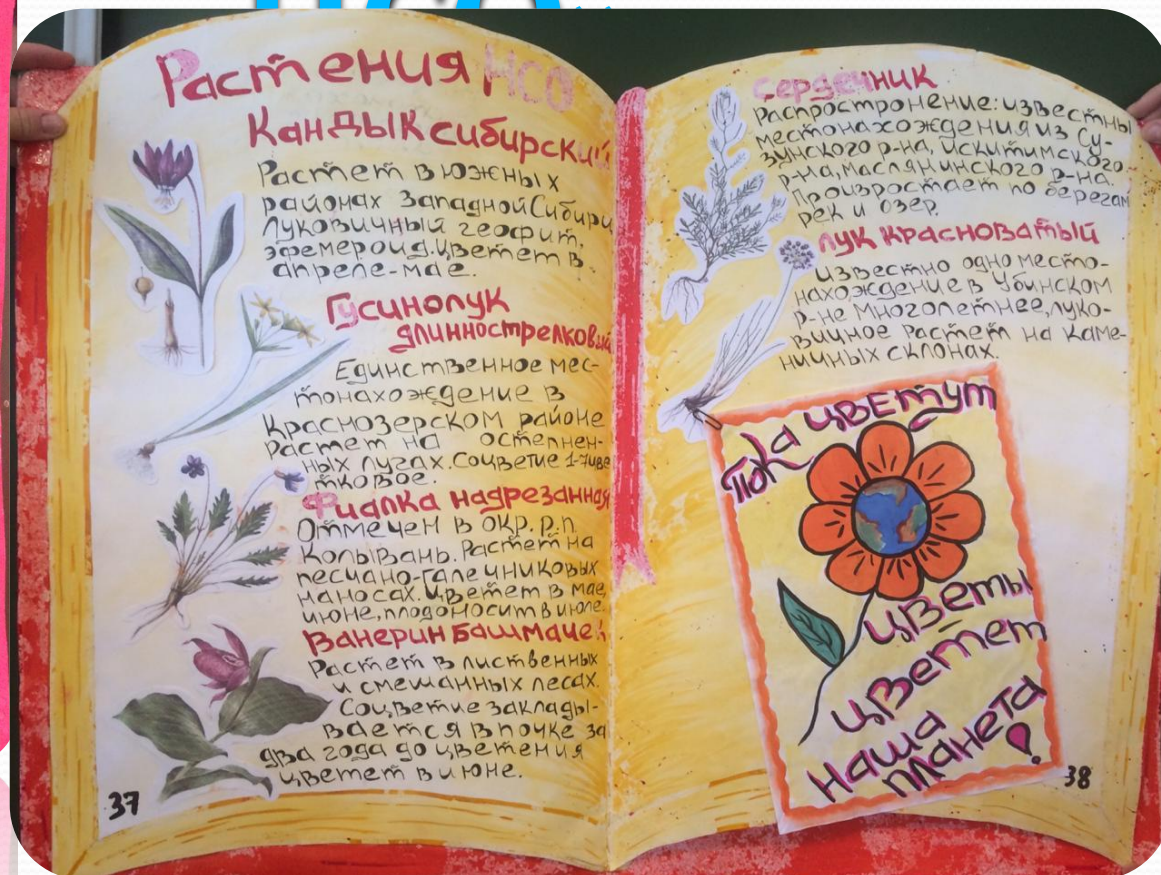 Растения НСО
Кандык сибирский
Растет в южных
районах Западной Сибири
Луковичный геофит,
эфемероид. Цветет в
апреле-мае.
Гусинолук
длиннострелковый
Единственное мес-
тонахождение в
Краснозерском районе
Растет на остепнен-
ных лугах. Соцветие 1-7цве
тковое.
Фиалка надрезанная
Отмечен в окр. р.п
Колывань. Растет на
песчано-галечниковых
наносах. Цветет в мае,
июне, плодоносит в июле.
Ванерин Башмаче
Растет в лиственных
и смешанных лесах.
Соцветие заклады-
вается в почке за
два года до цветения
цветет в июне.
37
Сердечник
Распростронение: известны
местонахождения из Су-
зунского р-на, Искитимского
р-на, маслянинского р-на.
Произростает по берегам
рек и озер.
лук красноватый
Известно одно место-
нахождение в Убинском
р-не Многолетнее, луко-
вичное Растет на каме-
ничных склонах.
Пока цветут
цветы
цветет
наша
планета!
38